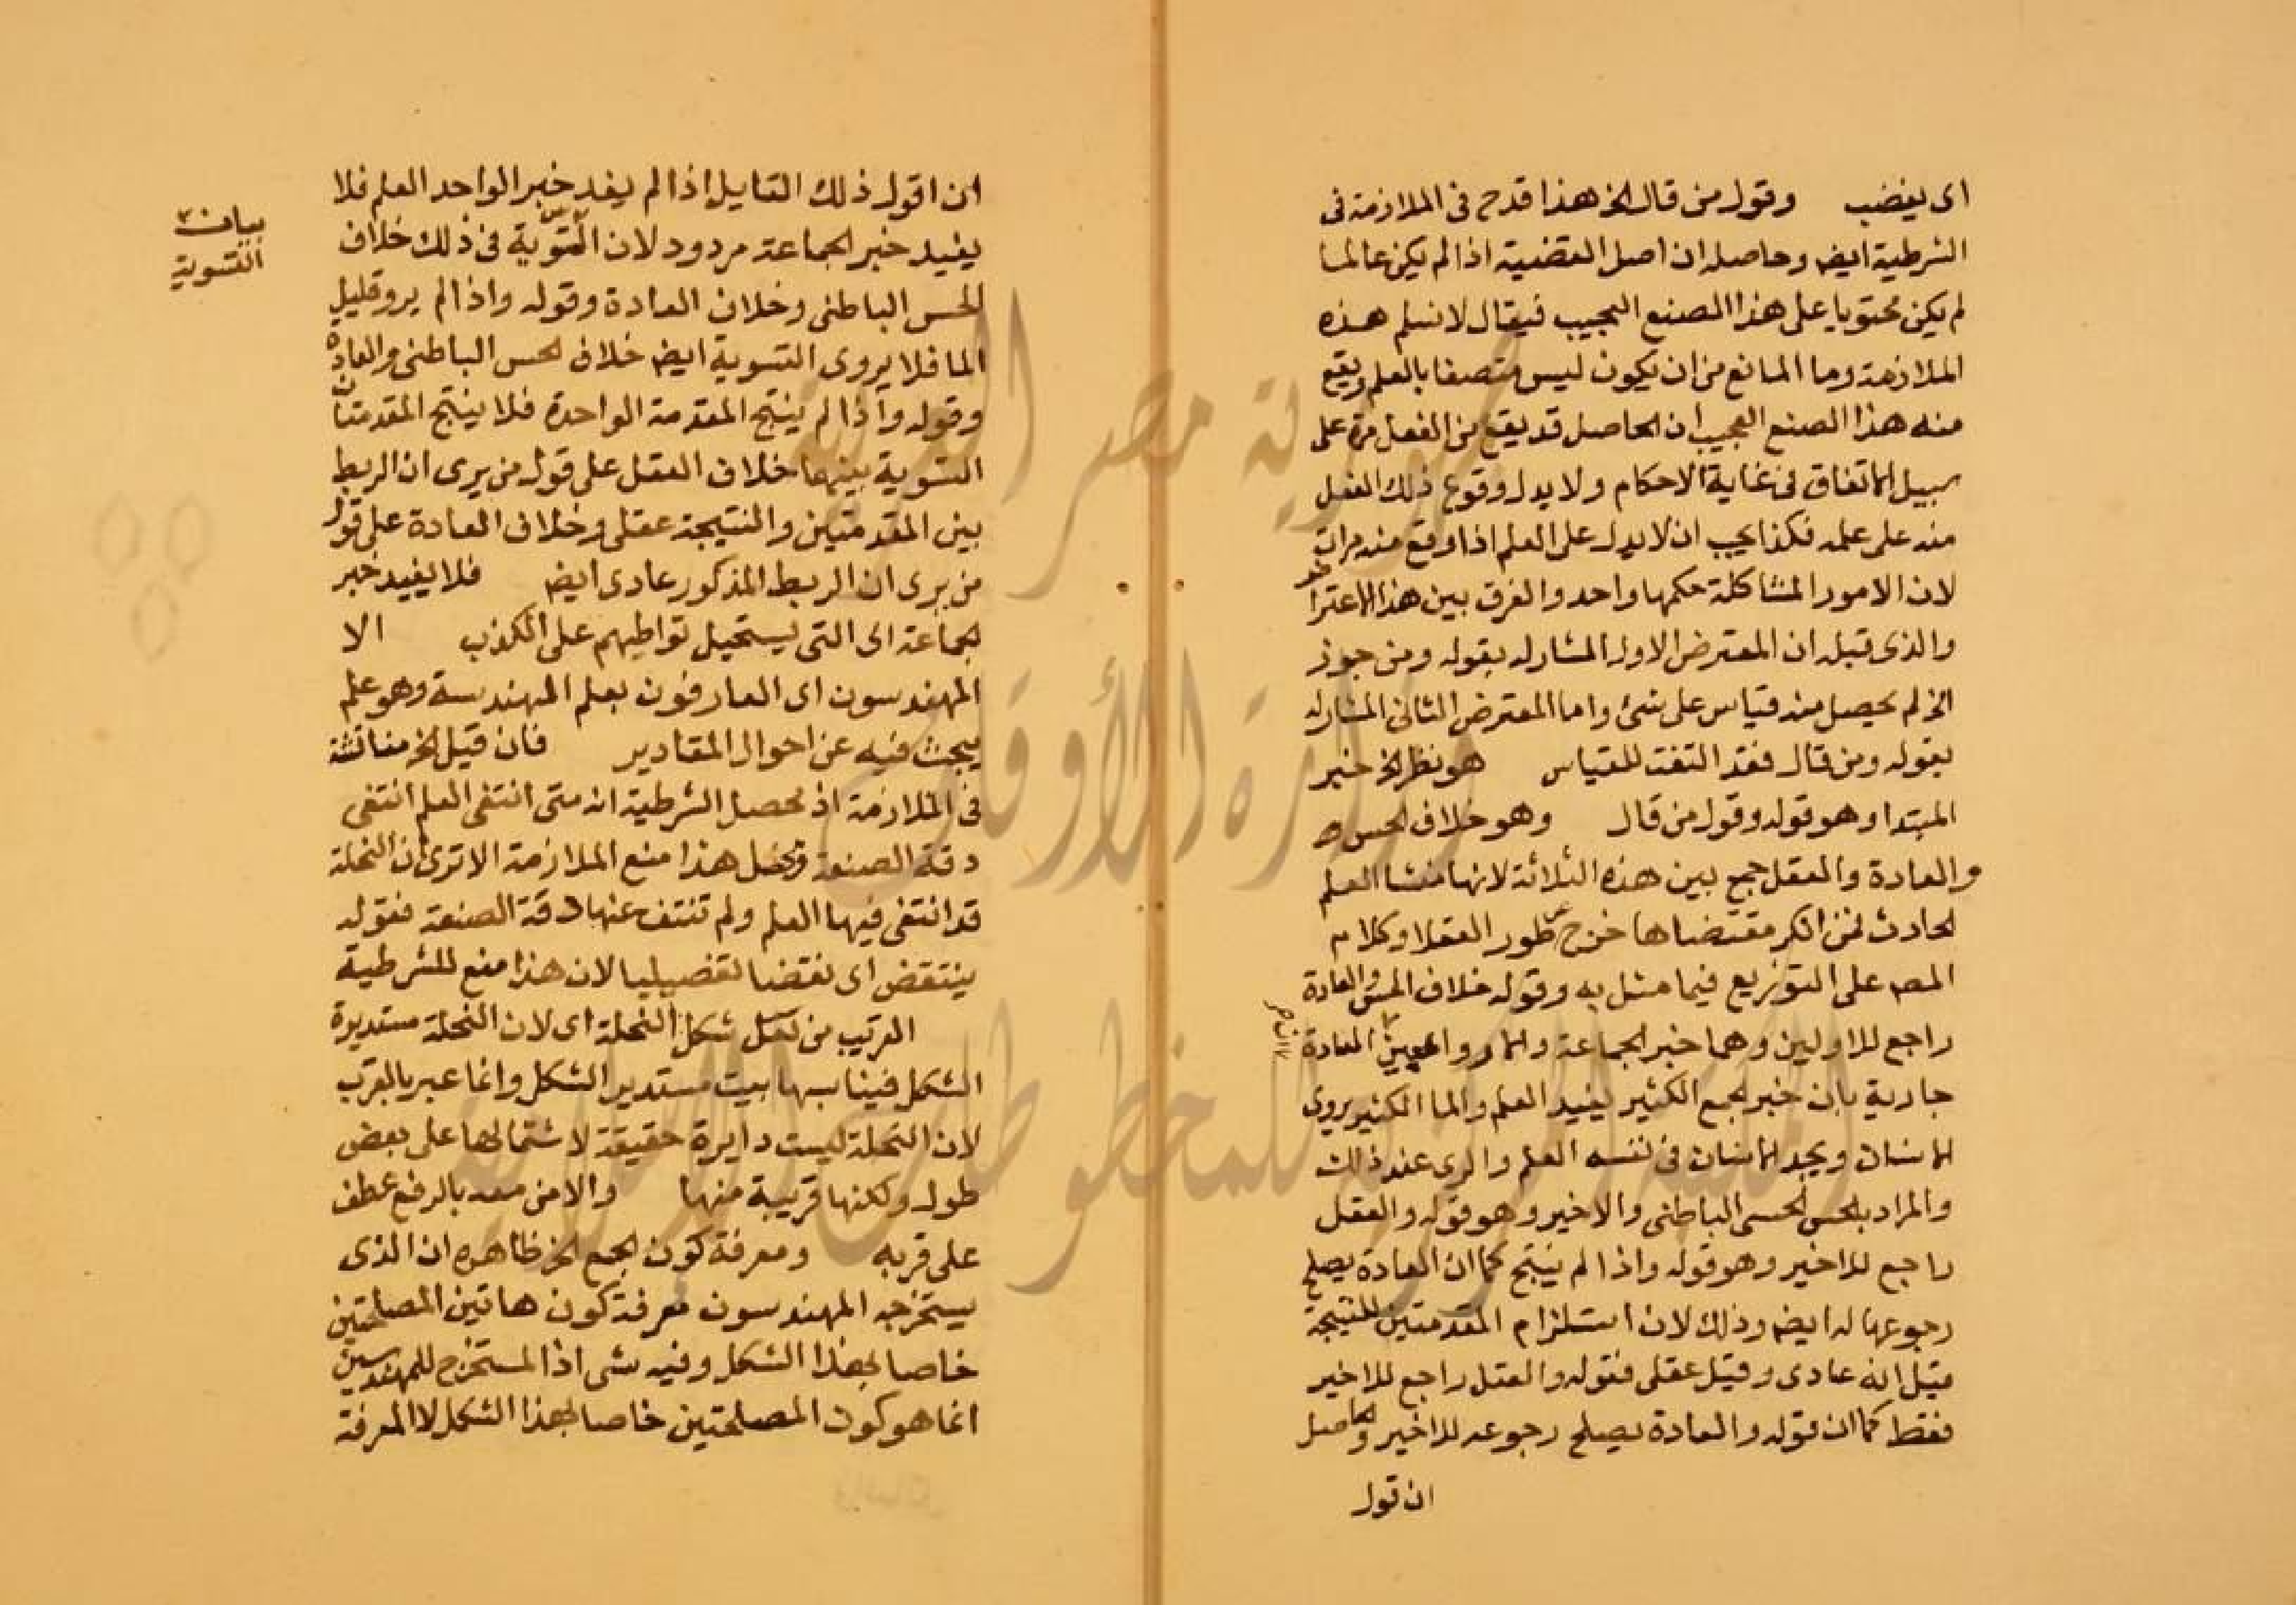 اى يغضب وقول من قال الخ هذا قدح فى الملازمة فى
الشرطية ايضا وحاصله ان اصل القضية اذا لم يكن عالما
لم يكن محتويا على هذا المصنع العجيب فيقال لا نسلم هذه
الملازمة وما المانع من ان يكون ليس متصفا بالعلم ويقع
منه هذا الصنع العجيب ان الحاصل قد يقع من الفعل مرة على
سبيل الاتفاق فى غاية الاحكام ولا يدل وقوع ذلك الفعل
منه على علمه فكذا يجب ان لا يدل على العلم اذا وقع منه مرات
لان الامور المتشاكلة حكمها واحد والفرق بين هذا الاعتراض
والذى قبله ان المعترض الاول المشار له بقوله ومن جوز
الخ لم يحصل منه قياس على شئ واما المعترض الثانى المشار له
بقوله ومن قال فقد التفت للقياس هو نظر الخ خبر
المبتدا وهو قوله وقول من قال وهو خلاف الحس
والعادة والعقل جمع بين هذه الثلاثة لانها منشا العلم
الحادث فمن انكر مقتضاها خرج عن طور العقلا وكلام
المص على التوزيع فيما مثل به وقوله خلاف الحس والعادة
راجع للاولين وهما خبر الجماعة والما العادة
جارية بان خبر الجمع الكثير يفيد العلم والما الكثير يروى
الانسان ويجد الانسان فى نفسه العلم والرى عند ذلك
والمراد بالحس الحسى الباطنى والاخير وهو قوله والعقل
راجع للاخير وهو قوله واذا لم ينتج كما ان العادة يصلح
رجوعها له ايضا وذلك لان استلزام المقدمتين للنتيجة
قيل انه عادى وقيل عقلى فقوله والعقل راجع للاخير
فقط كما ان قوله والعادة يصلح رجوعه للاخير والحاصل
ان قول
ان اقول ذلك القايل اذا لم يفد خبر الواحد العلم فلا
يفيد خبر الجماعة مردود لان التسوية فى ذلك خلاف
الحس الباطنى وخلاف العادة وقوله واذا لم يرو قليل
الما فلا يروى التسوية ايضا خلاف الحس الباطنى والعادة
وقوله واذا لم ينتج المقدمة الواحدة فلا ينتج المقدمتان
التسوية بينهما خلاف العقل على قول من يرى ان الربط
بين المقدمتين والنتيجة عقلى وخلاف العادة على قول
من يرى ان الربط المذكور عادى ايضا فلا يفيد خبر
الجماعة اى التى يستحيل تواطيهم على الكذب الا
المهندسون اى العارفون بعلم الهندسة وهو علم
يبحث فيه عن احوال المقادير فان قيل الخ مناقشة
فى الملازمة اذ محصل الشرطية انه متى انتفى العلم انتفى
دقة الصنعة ومحصل هذا منع الملازمة الا ترى ان النحلة
قد انتفى فيها العلم ولم تنتف عنها دقة الصنعة فقوله
ينتقض اى نقضا تفصيليا لان هذا منع للشرطية
القريب من شكل النحلة اى لان النحلة مستديرة
الشكل فيناسبها بيت مستدير الشكل وانما عبر بالقرب
لان النحلة ليست دايرة حقيقة لاشتمالها على بعض
طول ولكنها قريبة منها والامن معه بالرفع عطف
على قربه ومعرفة كون الجمع الخ ظاهره ان الذى
يستخرجه المهندسون معرفة كون هاتين المصلحتين
خاصا لهذا الشكل وفيه شى اذ المستخرج للمهندسين
انما هو كون المصلحتين خاصا لهذا الشكل لا المعرفة
بيان
التسوية